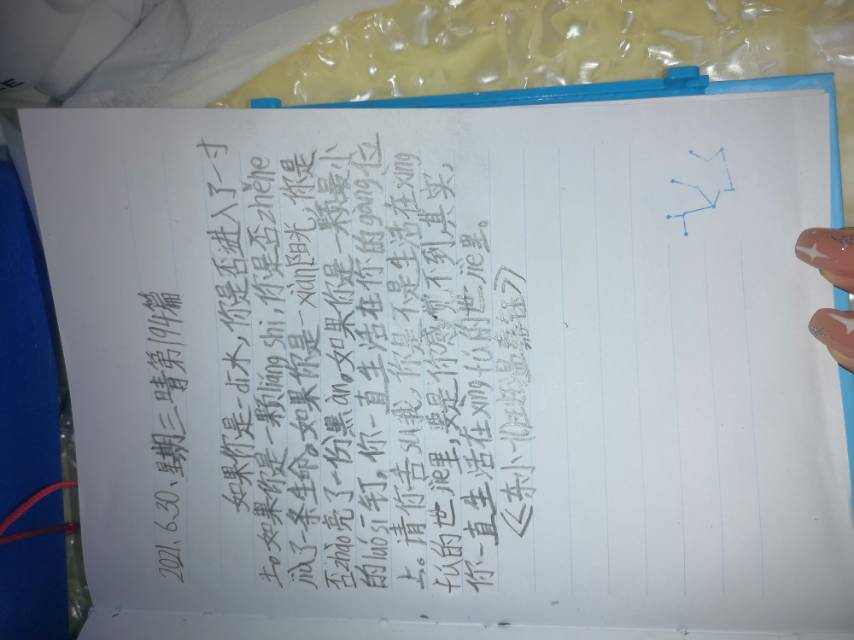 2021.6.30.星期三晴第194篇
如果你是一di水,你是否进入了一寸
土。如果你是一颗liang shi,你是否
了一条生命。如果你是一xiàn阳光,你是
否zhào亮了一份黑àn。如果你是一颗最小
的luó sī钉,你一直生活在你的gǎng位
上。请你告sù我,你是不是生活在xìng
fú的世jiè里,要是你感觉不到其实,
你一直生活在xìng fú的世jiè里。